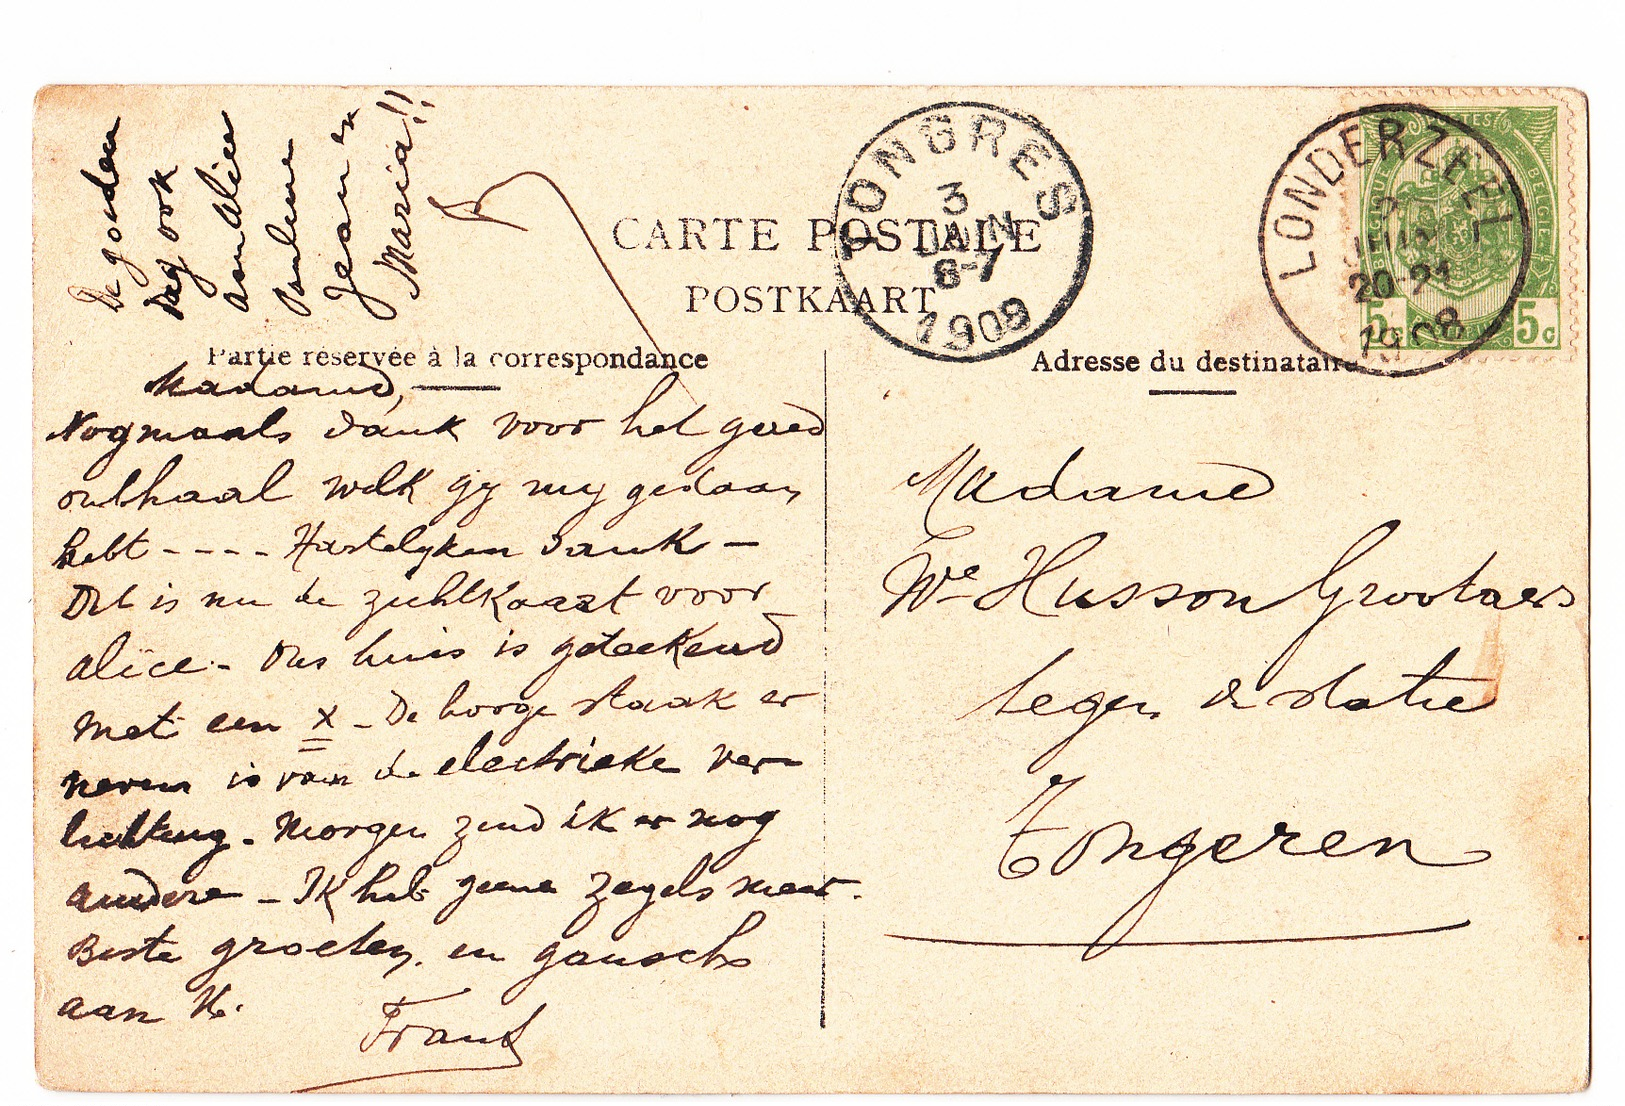 De goeden
Dag ook
aan Alice
Pauline
Jean en
Maria!!
CARTE POSTALE
POSTKAART
TONGRES
3
JUIN
6-7
1908
LONDERZEEL
JUIN
20-21
1908
POSTES
BELGIQUE
BELGIË
5c
5c
Partie réservée à la correspondance
Adresse du destinataire
Madame,
Nogmaals dank voor het goed
onthaal welk gy my gedaan
hebt ---- Hartelyken dank -
Dit is nu de zichtkaart voor
Alice - Ons huis is geteekend
met een x - De hooge staak er
neven is van de electrieke ver-
lichting - Morgen zend ik er nog
andere - Ik heb geene zegels meer.
Beste groeten en gansch
aan U.
Frans
Madame
We Husson Grootaers
tegen de statie
Tongeren